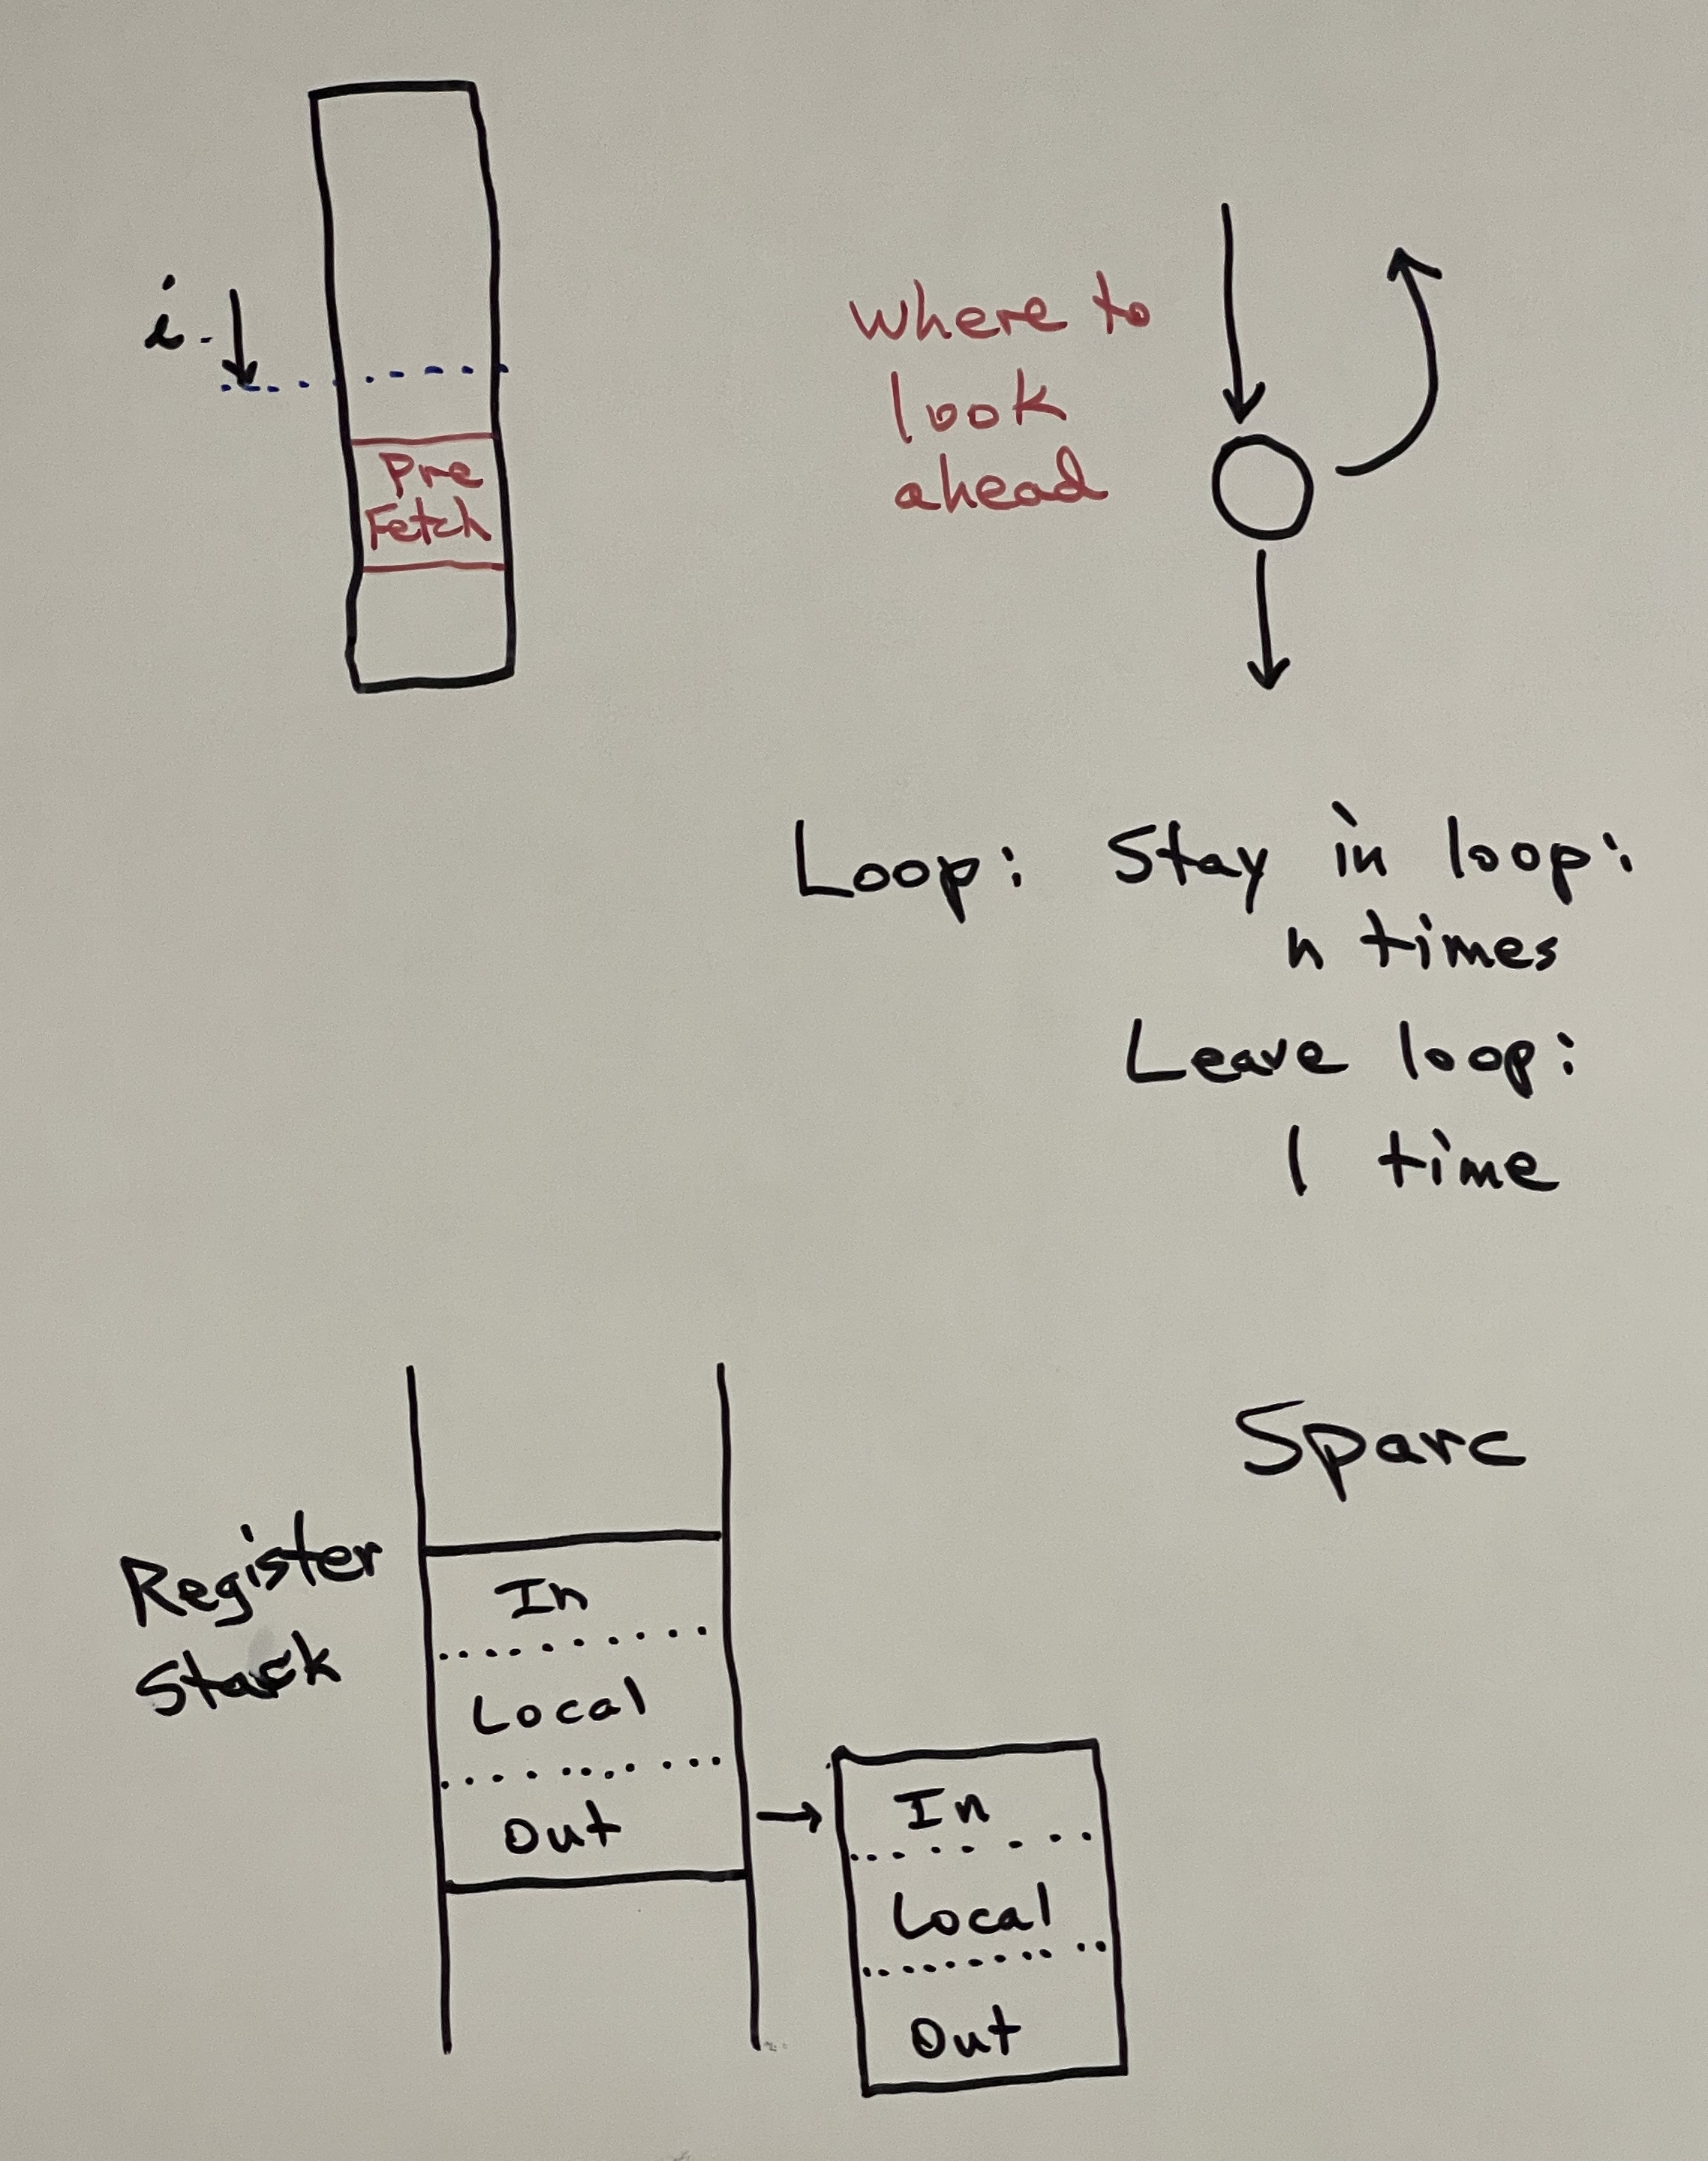 i
Pre
Fetch
where to
look
ahead
Loop: Stay in loop:
n times
Leave loop:
1 time
Sparc
Register
Stack
In
Local
Out
In
Local
Out